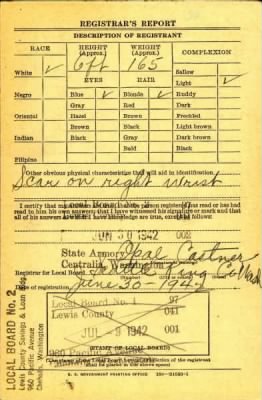 REGISTRAR'S REPORT
DESCRIPTION OF REGISTRANT
RACE HEIGHT (Approx.) WEIGHT (Approx.) COMPLEXION
6 ft 165
White ✓ Sallow
EYES HAIR Light ✓
Negro Blue ✓ Blonde ✓ Ruddy
Gray Red Dark
Oriental Hazel Brown Freckled
Brown Black Light brown
Indian Black Gray Dark brown
Bald Black
Filipino
Other obvious physical characteristics that will aid in identification
Scar on right wrist
I certify that my answers are true; that the person registered has read or has had
read to him his own answers; that I have witnessed his signature or mark and that
all of his answers of which I have knowledge are true, except
JUN 30 1942 002
State Armory Opal Castner
Centralia, Washington
Registrar for Local Board King Wash
Date of registration June 30 - 1942
Local Board No. 1 97
Lewis County 041
JUL -9 1942 001
960 Pacific Avenue
(STAMP OF LOCAL BOARD)
shall be placed in the above space)
U. S. GOVERNMENT PRINTING OFFICE
LOCAL BOARD No. 2
Lewis County Savings & Loan Bldg.
960 Pacific Avenue
Washington